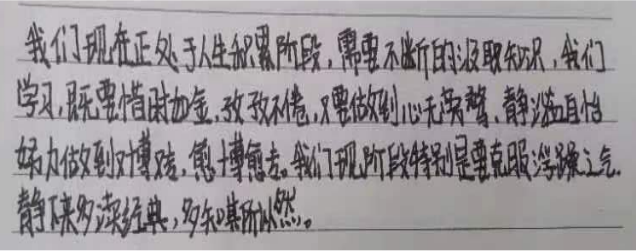 我们现在正处于人生积累阶段，需要不断的汲取知识，我们
学习，既要惜时如金，孜孜不倦，又要做到心无旁骛，静谧自怡
努力做到对博，愈博愈专。我们现阶段特别是要克服浮躁之气，
静下来多读经典，多知其所以然。